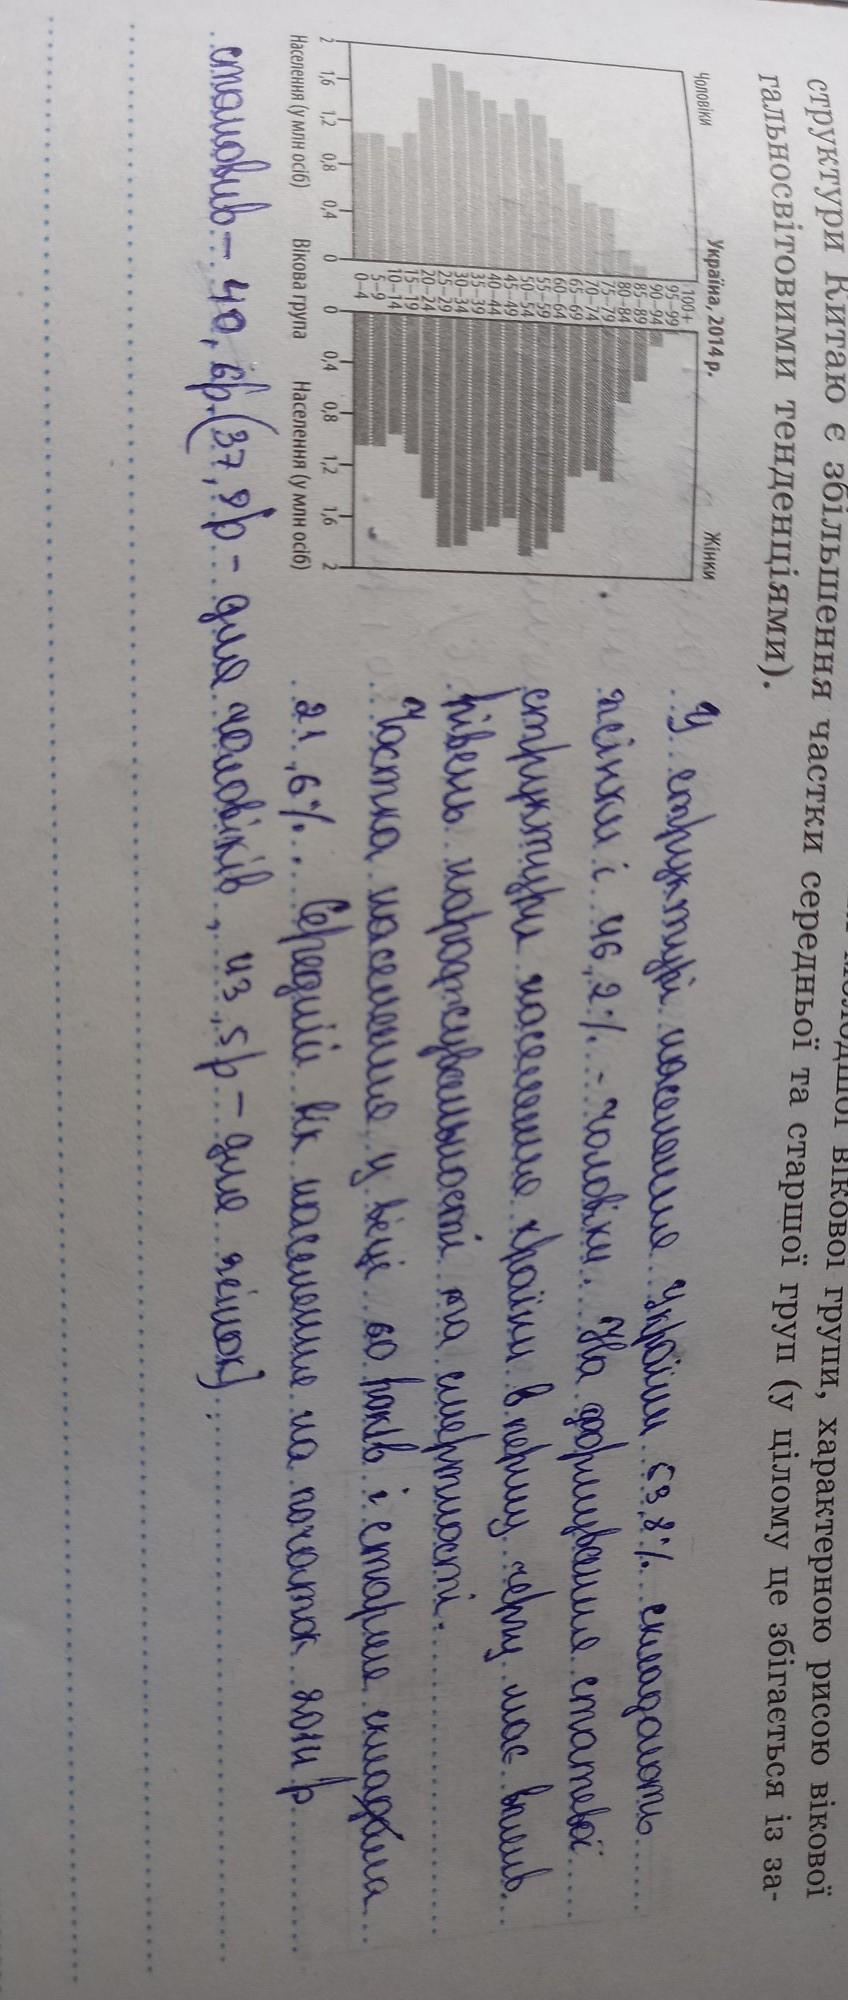 молодшої вікової групи, характерною рисою вікової
структури Китаю є збільшення частки середньої та старшої груп (у цілому це збігається із за-
гальносвітовими тенденціями).
Чоловіки Україна, 2014 р. Жінки
100+
95–99
90–94
85–89
80–84
75–79
70–74
65–69
60–64
55–59
50–54
45–49
40–44
35–39
30–34
25–29
20–24
15–19
10–14
5–9
0–4
2 1,6 1,2 0,8 0,4 0 0 0,4 0,8 1,2 1,6 2
Населення (у млн осіб) Вікова група Населення (у млн осіб)
У структурі населення України 53,8% складають
жінки і 46,2% - чоловіки. На формування статевої
структури населення країни в першу чергу має вплив
рівень народжувальності та смертності.
Частка населення у віці 60 років і старше складала
21,6%. Середній вік населення на початок 2014 р
становив – 40,6р. (37,2р - для чоловіків, 43,5р – для жінок).